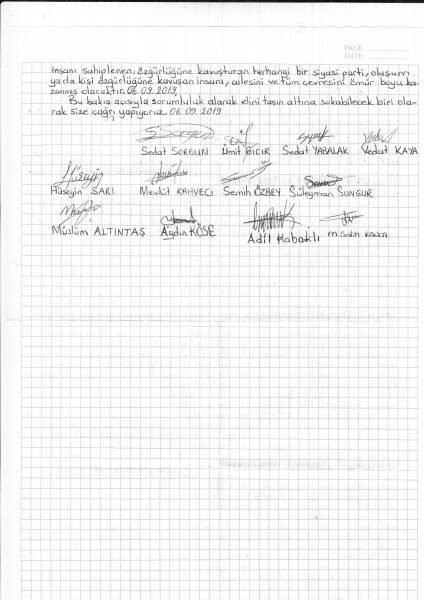 PAGE:
DATE:
İnsanı sahiplenen, özgürlüğüne kavuşturan herhangi bir siyasi parti, oluşum
ya da kişi özgürlüğüne kavuşan insanı, ailesini ve tüm çevresini ömür boyu ka-
zanmış olacaktır. 06.09.2019
Bu bakış açısıyla sorumluluk alarak elini taşın altına sokabilecek biri ola-
rak size çağrı yapıyoruz. 06.09.2019
Sedat SORGUN Ümit GICIR Sedat YABALAK Vedat KAYA
Hüseyin SARI Mevlüt KAHVECİ Semih ÖZBEY Süleyman SUNGUR
Müslüm ALTINTAŞ Aydın KÖSE Adil Kabaklı M. Salih KANCA